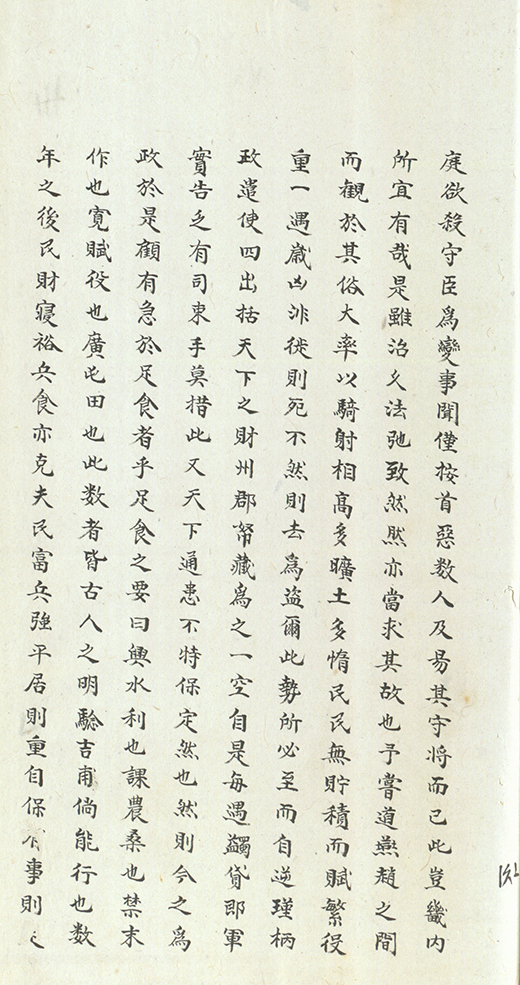 庭欲殺守臣爲變事聞僅按首惡数人及易其守将而已此豈畿内
所宜有哉是雖治久法弛致然然亦當求其故也予嘗道燕趙之間
而觀於其俗大率以騎射相髙多曠土多惰民民無貯積而賦繁役
重一遇歳凶非徙則死不然則去爲盗爾此勢所必至而自逆瑾柄
政遣使四出括天下之財州郡帑藏爲之一空自是每遇蠲貸即軍
實告乏有司束手莫措此又天下通患不特保定然也然則今之爲
政於是顧有急於足食者乎足食之要曰興水利也課農桑也禁末
作也寛賦役也廣屯田也此数者皆古人之明驗吉甫倘能行也数
年之後民財寝裕兵食亦克夫民富兵強平居則重自保有事則